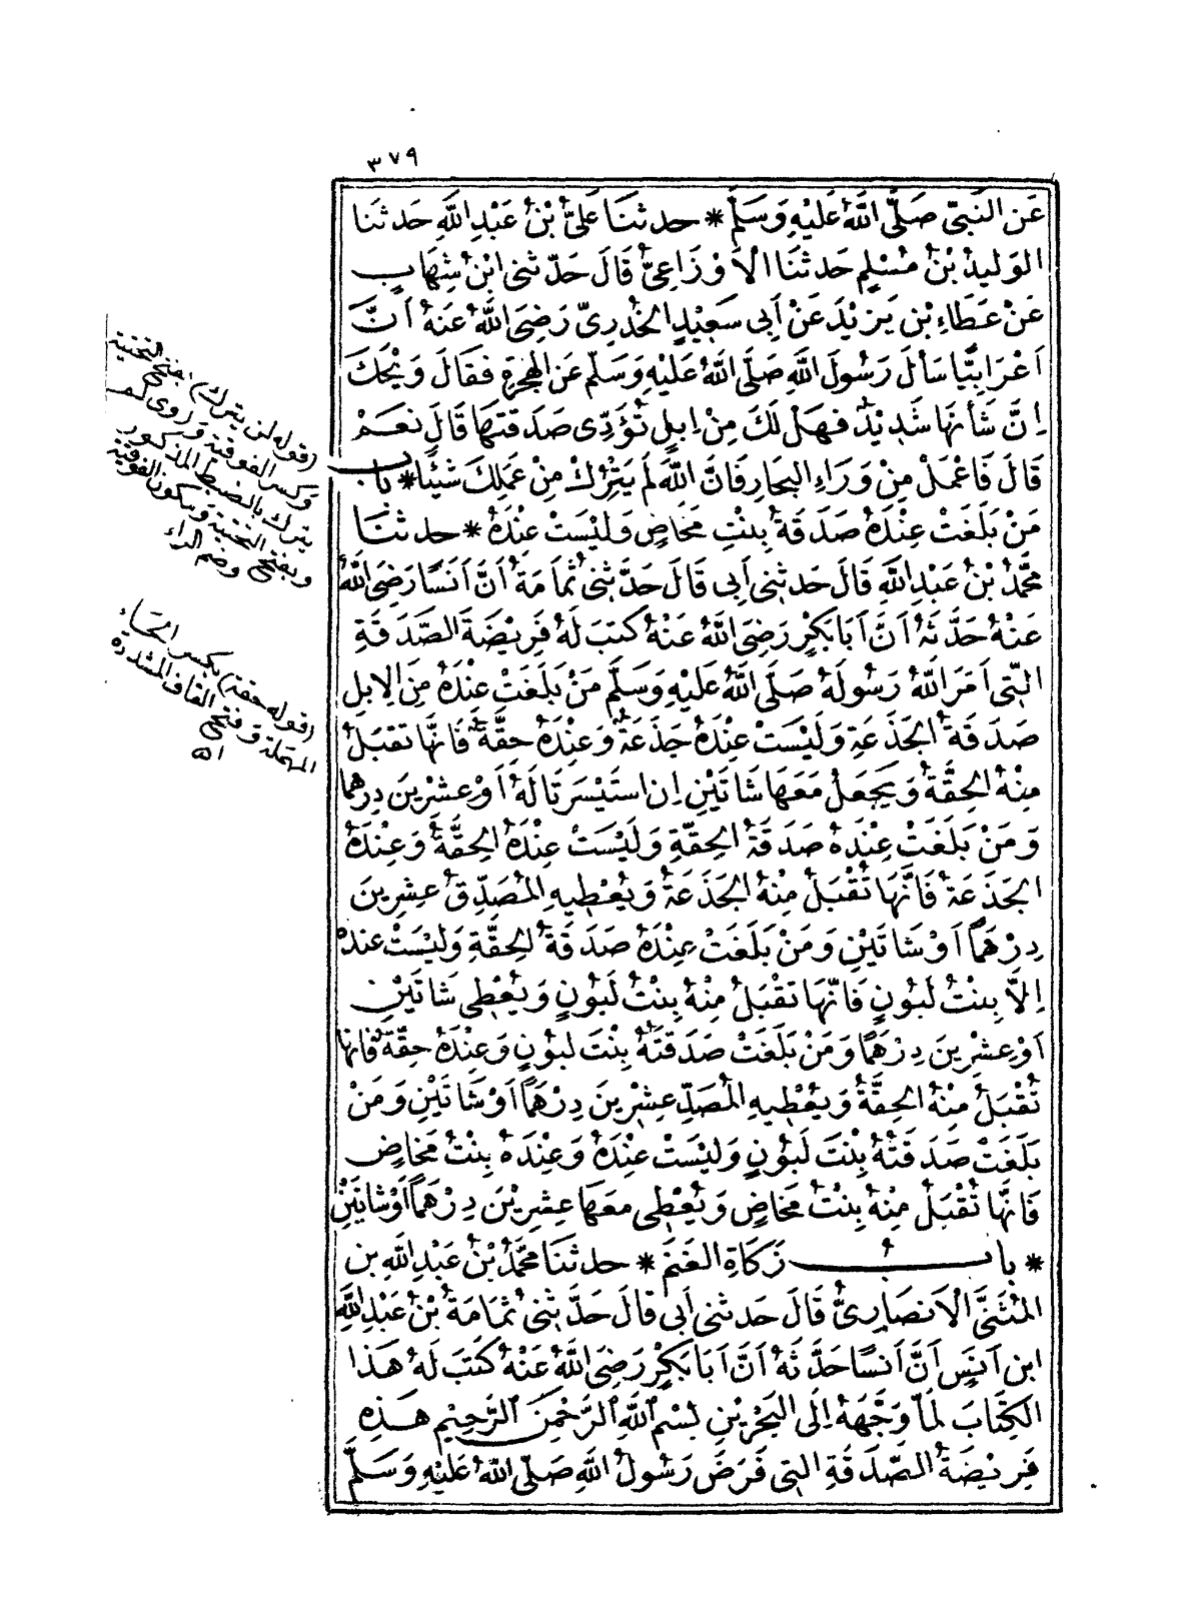 ٣٧٩
عَنِ النَّبِيِّ صَلَّى اللَّهُ عَلَيْهِ وَسَلَّمَ * حدثنَا عَلِيُّ بْنُ عَبْدِ اللَّهِ حَدثَنا
الوَلِيدُ بْنُ مُسْلِمٍ حَدثنَا الأَوْزَاعِيُّ قَالَ حَدَّثني ابْنُ شِهَابٍ
عَنْ عَطَاءِ بْنِ يَزِيْدَ عَنْ أَبِي سَعِيْدٍ الخُدْرِيِّ رَضِيَ اللَّهُ عَنهُ أَنَّ
أَعْرَابِيًّا سَأَلَ رَسُولَ اللَّهِ صَلَّى اللَّهُ عَلَيْهِ وَسَلَّمَ عَنِ الهِجْرَةِ فقَالَ وَيْحَكَ
اِنَّ شَأْنَهَا شَدِيْدٌ فَهَلْ لَكَ مِنْ اِبِلٍ تُؤَدِّي صَدَقَتَهَا قَالَ نعَمْ
قَالَ فَاعْمَلْ مِنْ وَرَاءِ البِحَارِ فَاِنَّ اللَّهَ لَمْ يَتِرَكَ مِنْ عَمَلِكَ شَيْئًا * باب
مَنْ بَلَغَتْ عِنْدَهُ صَدَقَةُ بِنْتِ مَخَاضٍ وَليْسَتْ عِنْدَهُ * حدثنَا
مُحَمَّدُ بْنُ عَبْدِ اللَّهِ قَالَ حَدثَني أَبِي قَالَ حَدَّثَنِي ثُمَامَةُ أَنَّ أَنَسًا رَضِيَ اللَّهُ
عَنْهُ حَدَّثَهُ أَنَّ أَبَا بَكْرٍ رَضِيَ اللَّهُ عَنْهُ كتَبَ لَهُ فَرِيْضَةَ الصَّدَقَةِ
التِّي أَمَرَ اللَّهُ رَسُولَهُ صَلَّى اللَّهُ عَلَيْهِ وَسَلَّمَ مَنْ بَلَغَتْ عِنْدَهُ مِنَ الاِبِلِ
صَدَقَةُ الجَذَعَةِ وَلَيْسَتْ عِنْدَهُ جَذَعَةٌ وَعِنْدَهُ حِقَّةٌ فَاِنَّهَا تقبَلُ
مِنْهُ الحِقَّةُ وَيَجْعَلُ مَعَهَا شَاتَيْنِ اِنِ استَيْسَرَتَا لَهُ أَوْ عِشْرِينَ دِرهَما
وَمَنْ بَلَغَتْ عِنْدَهُ صَدَقَةُ الحِقَّةِ وَلَيْسَتْ عِنْدَهُ الحِقَّةُ وَعِنْدَهُ
الجَذَعَةُ فَاِنَّهَا تُقْبَلُ مِنْهُ الجَذَعَةُ وَيُعْطِيهِ المُصَدِّقُ عِشْرِينَ
دِرْهَمًا أَوْ شَاتَيْنِ وَمَنْ بَلَغَتْ عِنْدَهُ صَدَقَةُ الحِقَّةِ وَليْسَتْ عندهُ
اِلاَّ بِنْتُ لَبُونٍ فَاِنَّهَا تقْبَلُ مِنْهُ بِنْتُ لَبُونٍ وَيُعْطِي شَاتَيْنِ
أَوْ عِشْرِينَ دِرْهَمًا وَمَنْ بَلَغَتْ صَدَقتُهُ بِنْتَ لَبُونٍ وَعِنْدَهُ حِقَّةٌ فَاِنهَا
تُقْبَلُ مِنْهُ الحِقَّةُ وَيُعْطِيهِ المُصَدِّ عِشْرِينَ دِرْهَمًا أَوْ شَاتَيْنِ وَمَنْ
بَلَغَتْ صَدَقَتُهُ بِنْتَ لَبُونٍ وَليْسَتْ عِنْدَهُ وَعِنْدَهُ بِنْتُ مَخَاضٍ
فَاِنَّهَا تُقْبَلُ مِنْهُ بِنْتُ مَخاضٍ وَيُعْطِي معَهَا عِشرِيْنَ دِرْهَمًا أَوْ شاتَيْنِ
* بابُ زَكَاةِ الغَنَمِ * حدثنَا مُحَمَّدُ بْنُ عَبْدِ اللَّهِ بنِ
المُثَنَّى الأَنصَارِيُّ قَالَ حَدثَني أَبِي قالَ حَدَّثَنِي ثمَامَةُ بْنُ عَبْدِ اللَّهِ
ابنِ أَنَسٍ أَنَّ أَنَسًا حَدَّثَهُ أَنَّ أَبَا بَكْرٍ رَضِيَ اللَّهُ عَنْهُ كَتَبَ لَهُ هَذَا
الكِتَابَ لَمَّا وَجَّهَهُ اِلَى البَحْرَيْنِ بِسْمِ اللَّهِ الرَّحْمَنِ الرَّحِيْمِ هَذِهِ
فَرِيْضَةُ الصَّدَقَةِ التِي فَرَضَ رَسُولُ اللَّهِ صَلَّى اللَّهُ عَلَيْهِ وَسَلَّمَ
(قوله لن يترك) بفتح التحتية
وكسر الفوقية وروى لم
يترك بالضبط المذكور
وبفتح التحتية وسكون الفوقية
وضم الراء
(قوله حقة) بكسر الحاء
المهملة وفتح القاف المشددة
اه